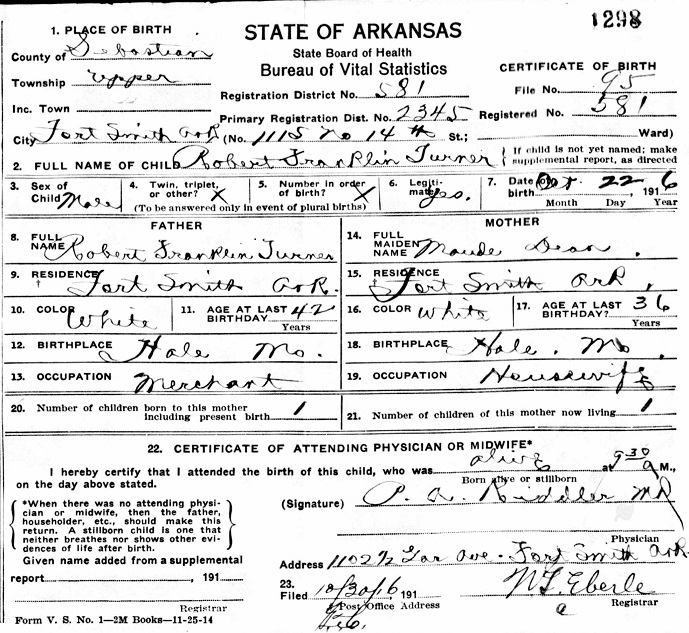 1298
1. PLACE OF BIRTH
STATE OF ARKANSAS
County of Sebastian
State Board of Health
CERTIFICATE OF BIRTH
Township Upper
Bureau of Vital Statistics
File No. 95
Inc. Town
Registration District No. 581
Registered No. 581
Primary Registration Dist. No. 2345
City Fort Smith Ark (No. 1115 No 14th St.; Ward)
2. FULL NAME OF CHILD Robert Franklin Turner { If child is not yet named; make supplemental report, as directed
3. Sex of Child Male
4. Twin, triplet, or other? X
5. Number in order of birth? X
(To be answered only in event of plural births)
6. Legitimate? Yes.
7. Date of birth Oct. 22, 1916
Month Day Year
FATHER
MOTHER
8. FULL NAME Robert Franklin Turner
14. FULL MAIDEN NAME Maude Dean.
9. RESIDENCE Fort Smith Ark.
15. RESIDENCE Fort Smith Ark.
10. COLOR White
11. AGE AT LAST BIRTHDAY 42
Years
16. COLOR White
17. AGE AT LAST BIRTHDAY? 36
Years
12. BIRTHPLACE Hale Mo.
18. BIRTHPLACE Hale. Mo
13. OCCUPATION Merchant
19. OCCUPATION Housewife
20. Number of children born to this mother including present birth 1
21. Number of children of this mother now living 1
22. CERTIFICATE OF ATTENDING PHYSICIAN OR MIDWIFE*
I hereby certify that I attended the birth of this child, who was alive at 9 30 a M.,
Born alive or stillborn
on the day above stated.
{ *When there was no attending physician or midwife, then the father, householder, etc., should make this return. A stillborn child is one that neither breathes nor shows other evidences of life after birth. }
(Signature) MD
Physician
Given name added from a supplemental
report , 191
Registrar
Address 1102½ Gar Ave. Fort Smith Ark
23.
Filed 10/30/16, 191
W F Eberle
Registrar
Post Office Address
Form V. S. No. 1—2M Books—11-25-14